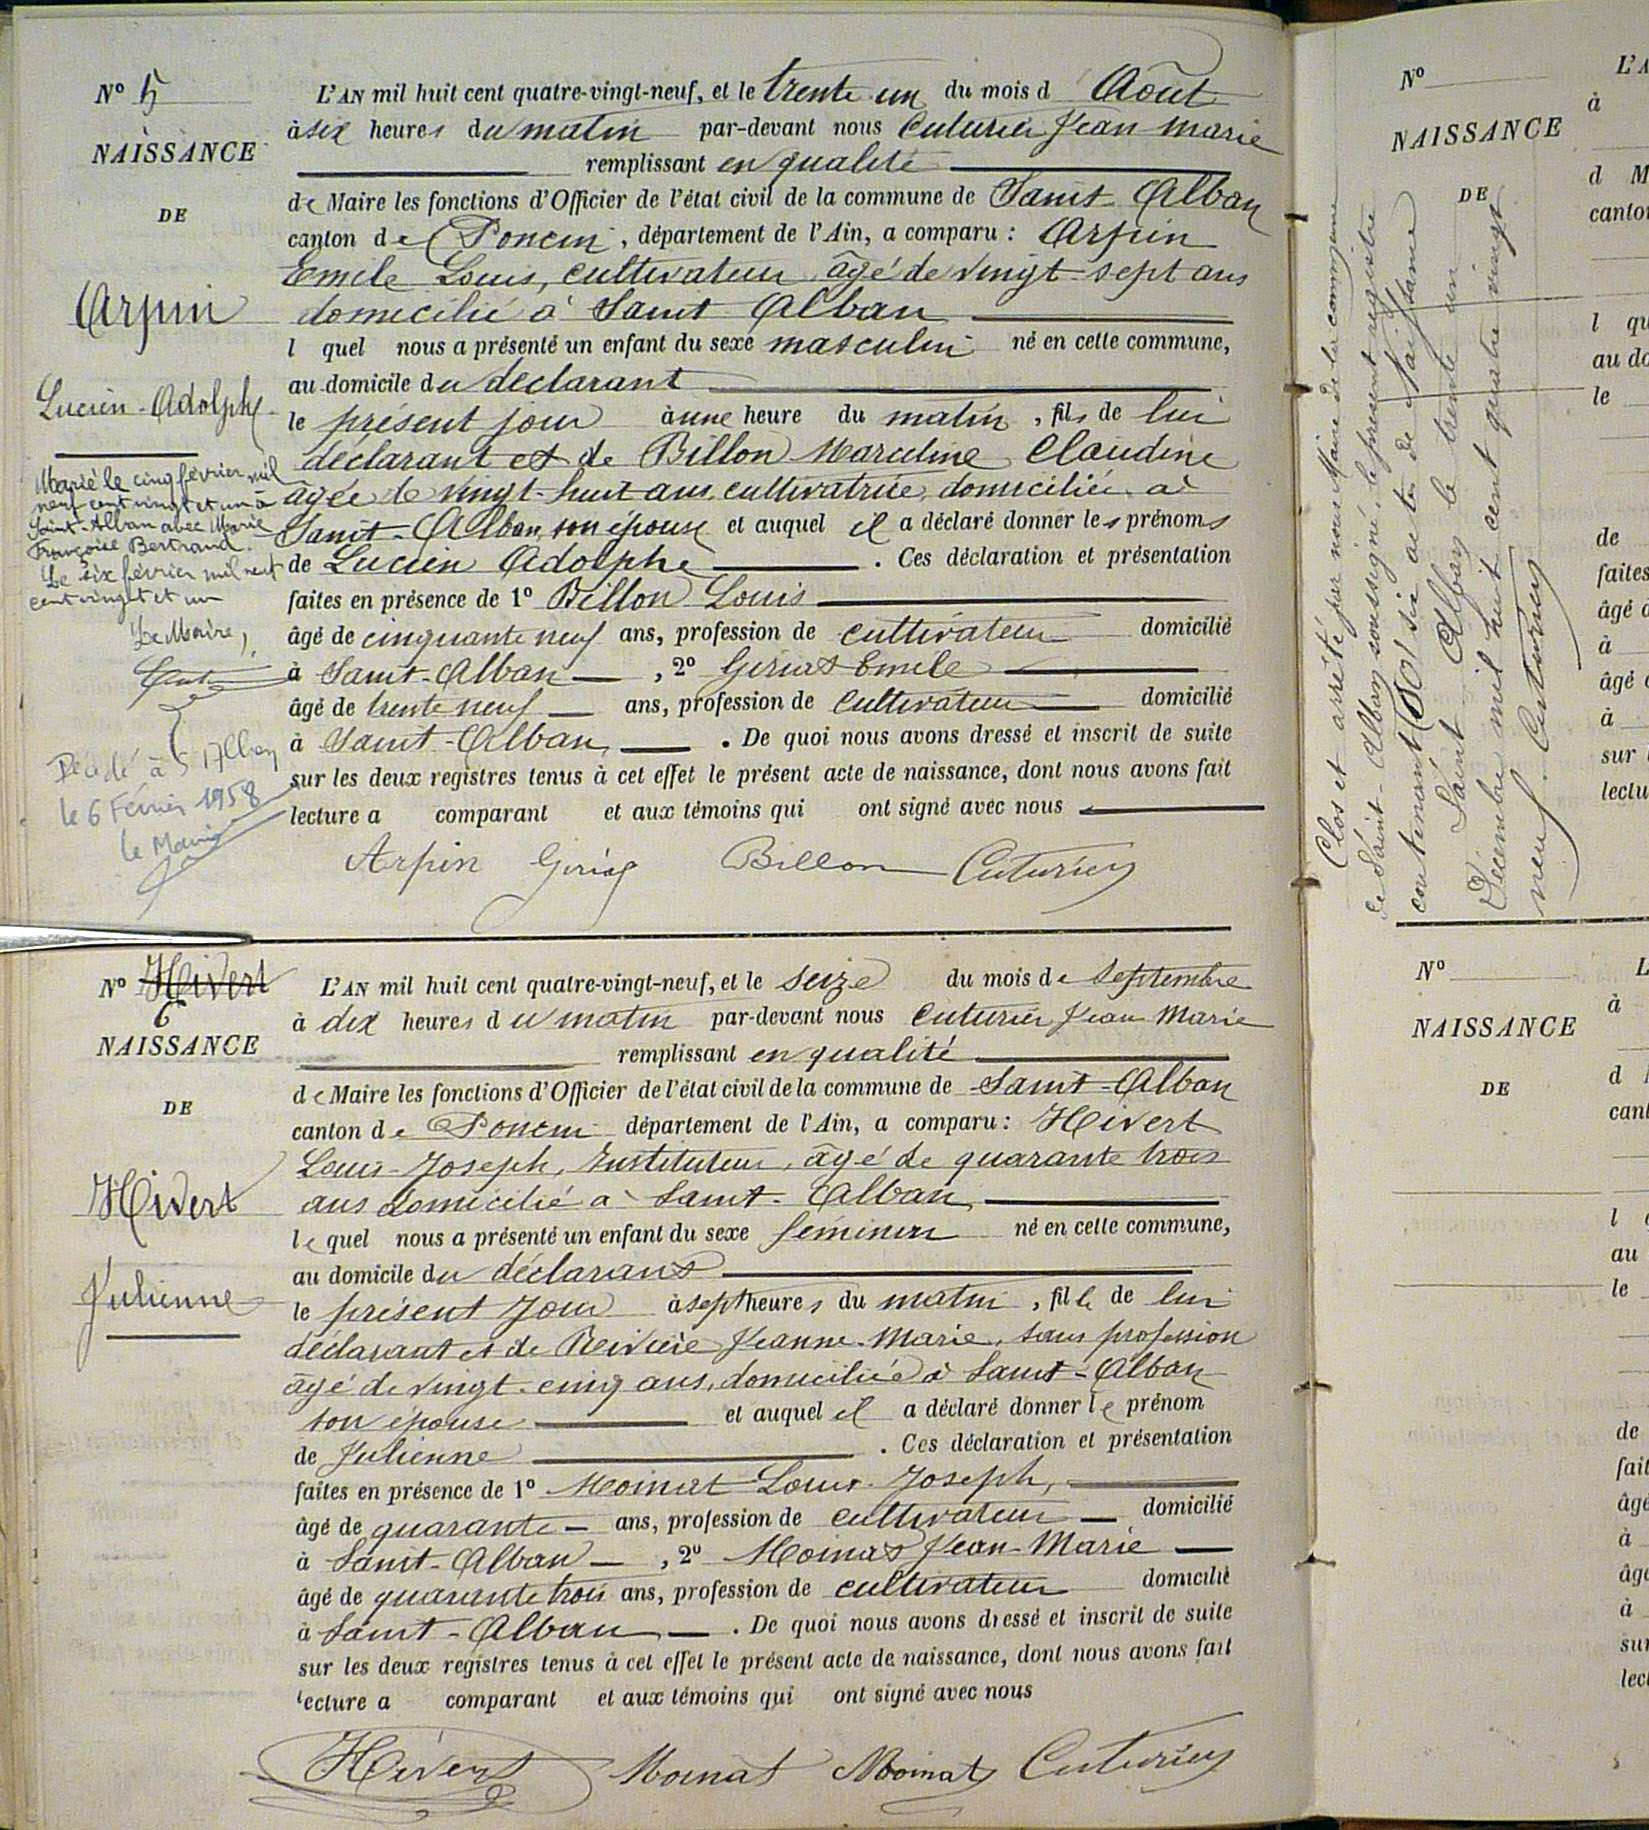 Nº 5
NAISSANCE
DE
Arpin
Lucien-Adolphe
Marié le cinq février mil
neuf cent vingt et un à
Saint-Alban avec Marie
Françoise Bertrand.
Le six février mil neuf
cent vingt et un
Le Maire,
Décédé à St Alban
le 6 Février 1958
le Maire
L'AN mil huit cent quatre-vingt-neuf, et le trente un du mois d Août
à six heures du matin par-devant nous Cuturier Jean Marie
remplissant en qualité
de Maire les fonctions d'Officier de l'état civil de la commune de Saint Alban
canton de Poncin, département de l'Ain, a comparu : Arpin
Emile Louis, cultivateur âgé de vingt-sept ans
domicilié à Saint Alban
l quel nous a présenté un enfant du sexe masculin né en cette commune,
au domicile du déclarant
le présent jour à une heure du matin, fils de lui
déclarant et de Billon Marceline Claudine
âgée de vingt-huit ans, cultivatrice, domiciliée à
Saint-Alban, son épouse et auquel il a déclaré donner les prénoms
de Lucien Adolphe. Ces déclaration et présentation
faites en présence de 1º Billon Louis
âgé de cinquante neuf ans, profession de cultivateur domicilié
à Saint-Alban, 2º Girias Emile
âgé de trente neuf ans, profession de cultivateur domicilié
à Saint-Alban. De quoi nous avons dressé et inscrit de suite
sur les deux registres tenus à cet effet le présent acte de naissance, dont nous avons fait
lecture a comparant et aux témoins qui ont signé avec nous
Arpin Girias Billon Cuturier
Nº Hivert
6
NAISSANCE
DE
Hivert
Julienne
L'AN mil huit cent quatre-vingt-neuf, et le seize du mois de Septembre
à dix heures du matin par-devant nous Cuturier Jean Marie
remplissant en qualité
de Maire les fonctions d'Officier de l'état civil de la commune de Saint-Alban
canton de Poncin département de l'Ain, a comparu : Hivert
Louis-Joseph, Instituteur, âgé de quarante trois
ans domicilié à Saint-Alban
le quel nous a présenté un enfant du sexe féminin né en cette commune,
au domicile du déclarant
le présent jour à sept heures du matin, fille de lui
déclarant et de Reivière Jeanne-Marie, sans profession
âgé de vingt-cinq ans, domiciliée à Saint-Alban
son épouse et auquel il a déclaré donner le prénom
de Julienne. Ces déclaration et présentation
faites en présence de 1º Moinat Louis-Joseph,
âgé de quarante ans, profession de cultivateur domicilié
à Saint-Alban, 2º Moinat Jean-Marie
âgé de quarante trois ans, profession de cultivateur domicilié
à Saint-Alban. De quoi nous avons dressé et inscrit de suite
sur les deux registres tenus à cet effet le présent acte de naissance, dont nous avons fait
lecture a comparant et aux témoins qui ont signé avec nous
Hivert Moinat Moinat Cuturier
Clos et arrêté par nous Maire de la commune
de Saint-Alban soussigné, le présent registre
contenant (6) six actes de Naissance
Saint-Alban le trente un
Décembre mil huit cent quatre vingt
neuf. Cuturier
Nº
NAISSANCE
DE
L'A
à
d M
canton
l qu
au do
le
de
faites
âgé d
à
âgé d
à
sur l
lectu
Nº
NAISSANCE
DE
L
à
d
cant
l
au
le
de
fait
âgé
à
âgé
à
sur
lect